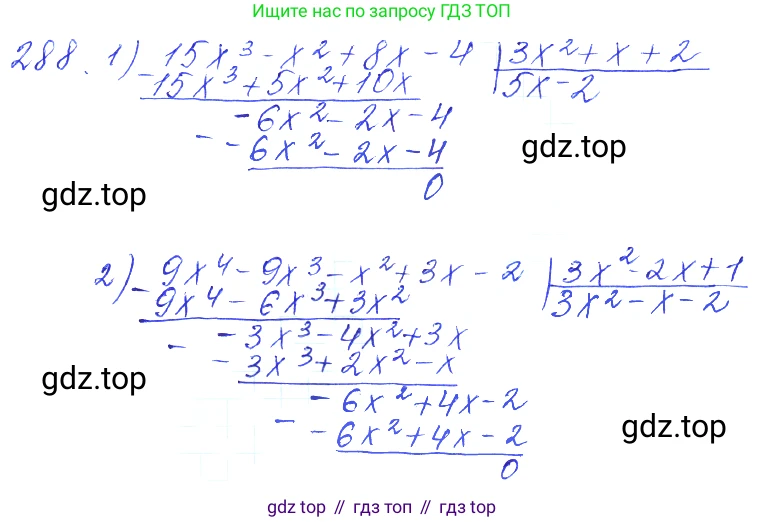 Ищите нас по запросу ГДЗ ТОП
288. 1) 15x³ - x² + 8x - 4 | 3x² + x + 2
- 15x³ + 5x² + 10x | 5x - 2
-6x² - 2x - 4
- -6x² - 2x - 4
0
gdz.top
gdz.top
2) 9x⁴ - 9x³ - x² + 3x - 2 | 3x² - 2x + 1
- 9x⁴ - 6x³ + 3x² | 3x² - x - 2
-3x³ - 4x² + 3x
- -3x³ + 2x² - x
-6x² + 4x - 2
- -6x² + 4x - 2
0
gdz.top
gdz.top
gdz top // гдз топ // gdz top // гдз топ